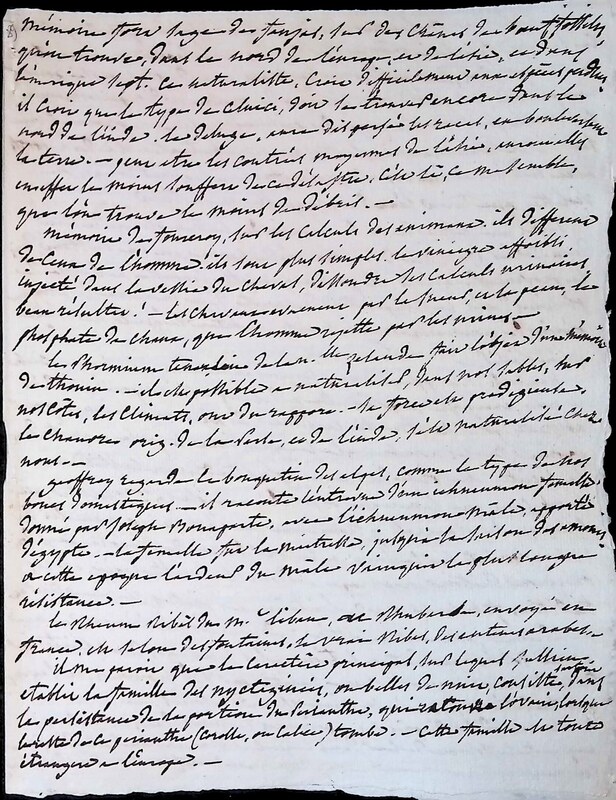 mémoire fort sage de faujas, sur des crânes de boeuf fossiles,
qu'on trouve, dans le nord de l'europe, et de l'asie, et dans
l'amérique sept. ce naturaliste, croit difficilement aux espèces perdues
il croit que le type de ceux ci, doit se trouver encore dans le
nord de l'inde. le deluge, aura dispersé les races, en bouleversant
la terre. — peut etre les contrées moyennes de l'asie, ont elles
en effet le moins souffert de ce désastre, c'est là, ce me semble,
que l'on trouve le moins de débris. —
mémoire de fourcroy, sur les calculs des animaux. ils diffèrent
de ceux de l'homme. ils sont plus simples. le vinaigre affoibli
injecté dans la vessie du cheval, dissoudra ses calculs urinaires,
beau résultat! — les chevaux par la sueur, et la peau, le
phosphate de chaux, que l'homme rejette par les urines —
le Phormium tenax de la n. lle zelande fait l'objet d'un mémoire
de thouin. — il est possible a naturaliser, dans nos sables, sur
nos côtes, les climats, ont du rapport. — sa force est prodigieuse.
le chanvre orig. de la Perse, et de l'inde, s'est naturalisé chez
nous. —
geoffroy regarde le bouquetin des alpes, comme le type de nos
boucs domestiques. — il raconte l'entrevue d'un ichneumon femelle
donné par Joseph Bonaparte, avec l'ichneumon mâle, apporté
d'égypte. — la femelle fut la maitresse, jusqu'à la saison des amours
a cette epoque l'ardeur du mâle vainquit la plus longue
résistance. —
le Rheum Ribes du m.t liban, ou Rhubarbe, envoyé en
france, est selon desfontaines, le vrai Ribes, des auteurs arabes. —
il me paroit que le caractère principal, sur lequel Jussieu
établit la famille des nyctaginées, ou belles de nuit, consiste, dans
la persistance de la portion du Périanthe, qui entoure l'ovaire, lorsque
le reste de ce périanthe (corolle, ou calice) tombe. — Cette famille est toute
étrangère a l'europe. —